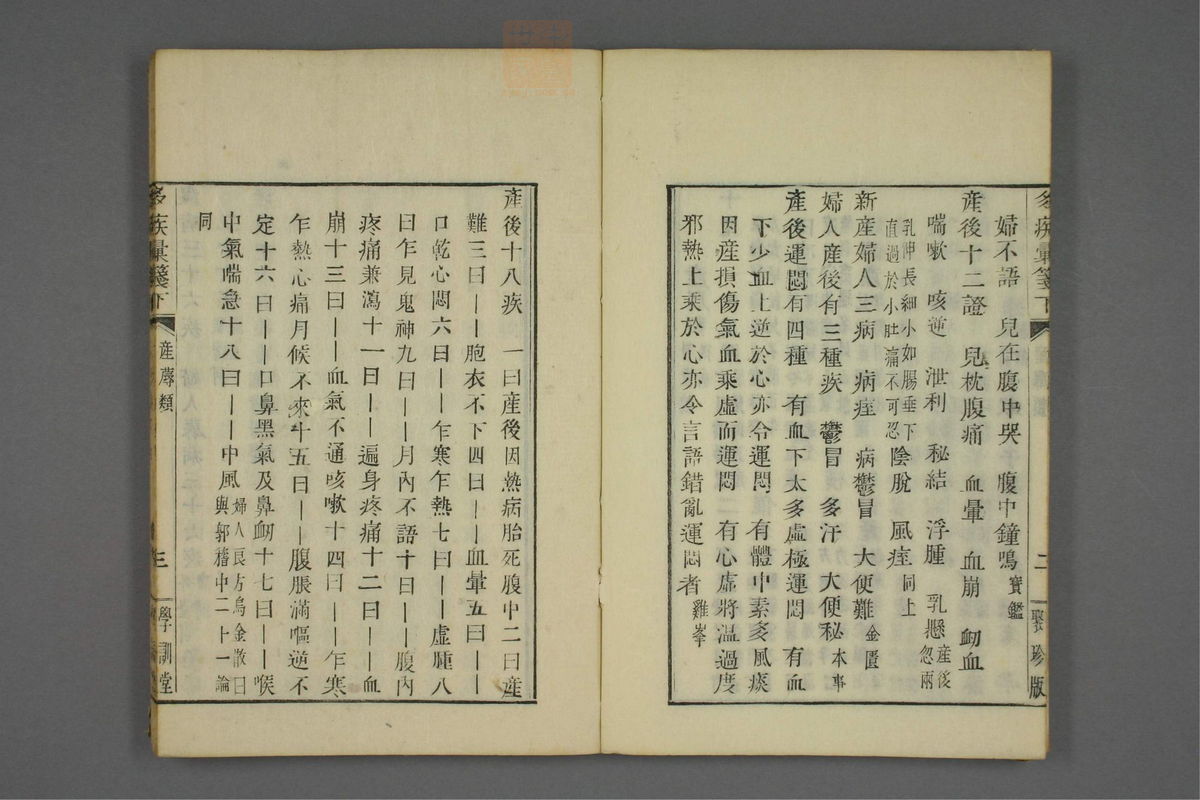 多疾彙箋下
二
聚珍版
婦不語 兒在腹中哭 腹中鐘鳴寶鑑
產後十二證 兒枕腹痛 血暈 血崩 衂血
喘嗽 咳逆 泄利 秘結 浮腫 乳懸產後忽兩
乳伸長細小如腸垂下直過於小肚痛不可忍 陰脫 風痓同上
新產婦人三病 病痓 病鬱冒 大便難金匱
婦人產後有三種疾 鬱冒 多汗 大便秘本事
產後運悶有四種 有血下太多虛極運悶 有血
下少血上逆於心亦令運悶 有體中素多風痰
因產損傷氣血乘虛而運悶 有心虛將溫過度
邪熱上乘於心亦令言語錯亂運悶者雞峯
產後十八疾 一曰產後因熱病胎死腹中二曰產
難三曰——胞衣不下四曰——血暈五曰——
口乾心悶六曰——乍寒乍熱七曰——虛腫八
曰乍見鬼神九曰——月內不語十曰——腹內
疼痛兼瀉十一曰——遍身疼痛十二曰——血
崩十三曰——血氣不通咳嗽十四曰——乍寒
乍熱心痛月候不來十五曰——腹脹滿嘔逆不
定十六曰——口鼻黑氣及鼻衂十七曰——喉
中氣喘急十八曰——中風婦人良方烏金散曰與郭稽中二十一論
同
多疾彙箋下
產蓐類
三
學訓堂